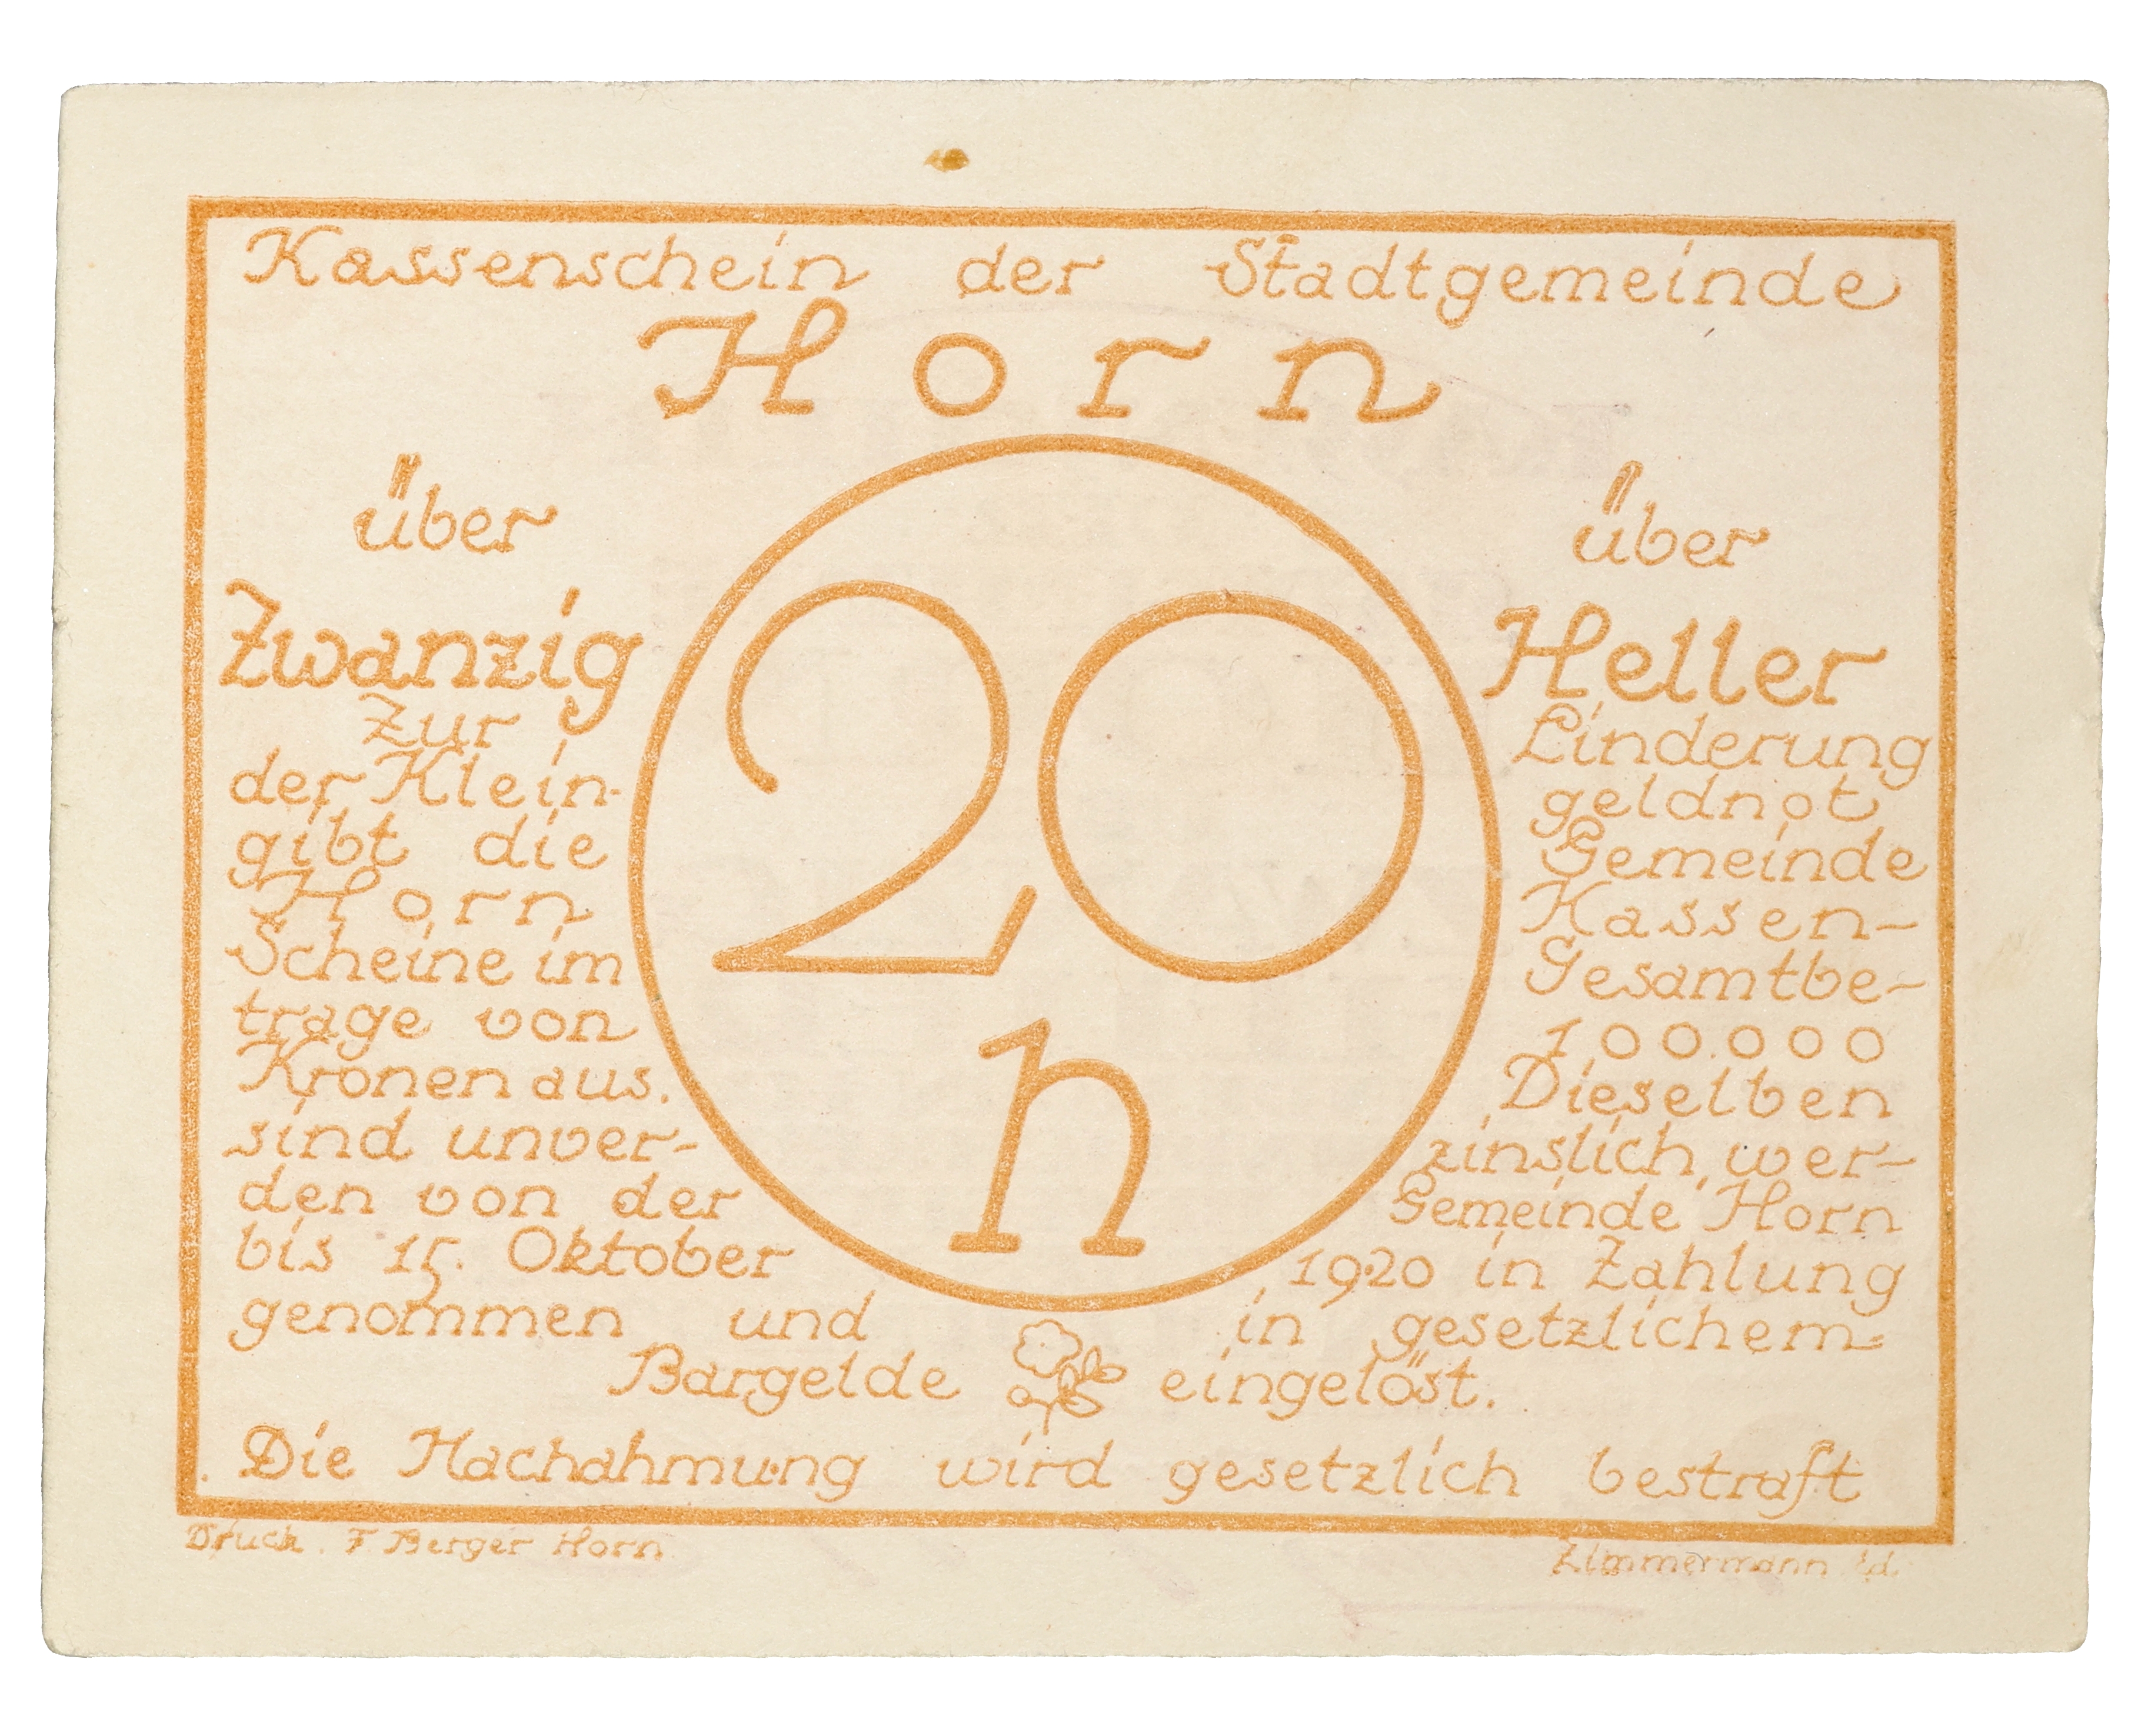 Kassenschein der Stadtgemeinde
Horn
über über
Zwanzig Heller
20
h
Zur Linderung
der Klein- geldnot
gibt die Gemeinde
Horn Kassen-
Scheine im Gesamtbe-
trage von 100.000
Kronen aus. Dieselben
sind unver- zinslich, wer-
den von der Gemeinde Horn
bis 15. Oktober 1920 in Zahlung
genommen und in gesetzlichem
Bargelde eingelöst.
Die Nachahmung wird gesetzlich bestraft
Druck. F Berger Horn Zimmermann